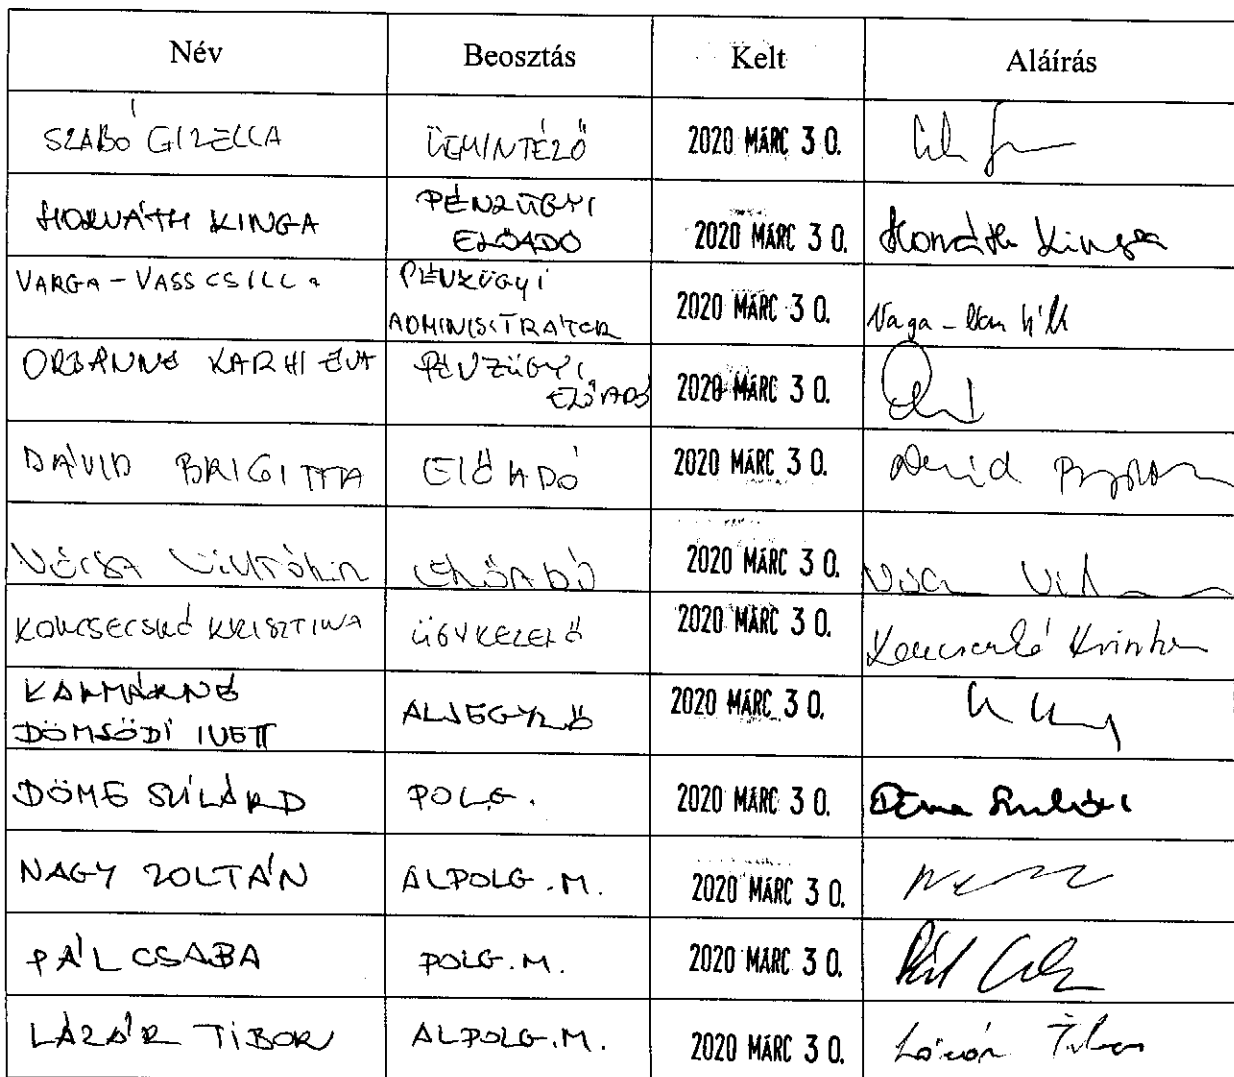 Név Beosztás Kelt Aláírás
SZABÓ GIZELLA ÜGYINTÉZŐ 2020 MÁRC 30.
HORVÁTH KINGA PÉNZÜGYI ELŐADÓ 2020 MÁRC 30. Horváth Kinga
VARGA-VASS CSILLA PÉNZÜGYI ADMINISZTRÁTOR 2020 MÁRC 30.
ORBÁNNÉ KARHI ÉVA PÉNZÜGYI ELŐADÓ 2020 MÁRC 30.
DÁVID BRIGITTA ELŐADÓ 2020 MÁRC 30. Dávid
VÉCSA VIKTÓRIA ELŐADÓ 2020 MÁRC 30.
KRISZTINA ÜGYKEZELŐ 2020 MÁRC 30.
KALMÁRNÉ DÖMSÖDI IVETT ALJEGYZŐ 2020 MÁRC 30.
DÖME SZILÁRD POLG. 2020 MÁRC 30. Döme Szilárd
NAGY ZOLTÁN ALPOLG.M. 2020 MÁRC 30.
PÁL CSABA POLG.M. 2020 MÁRC 30. Pál
LÁZÁR TIBOR ALPOLG.M. 2020 MÁRC 30. Lázár Tibor